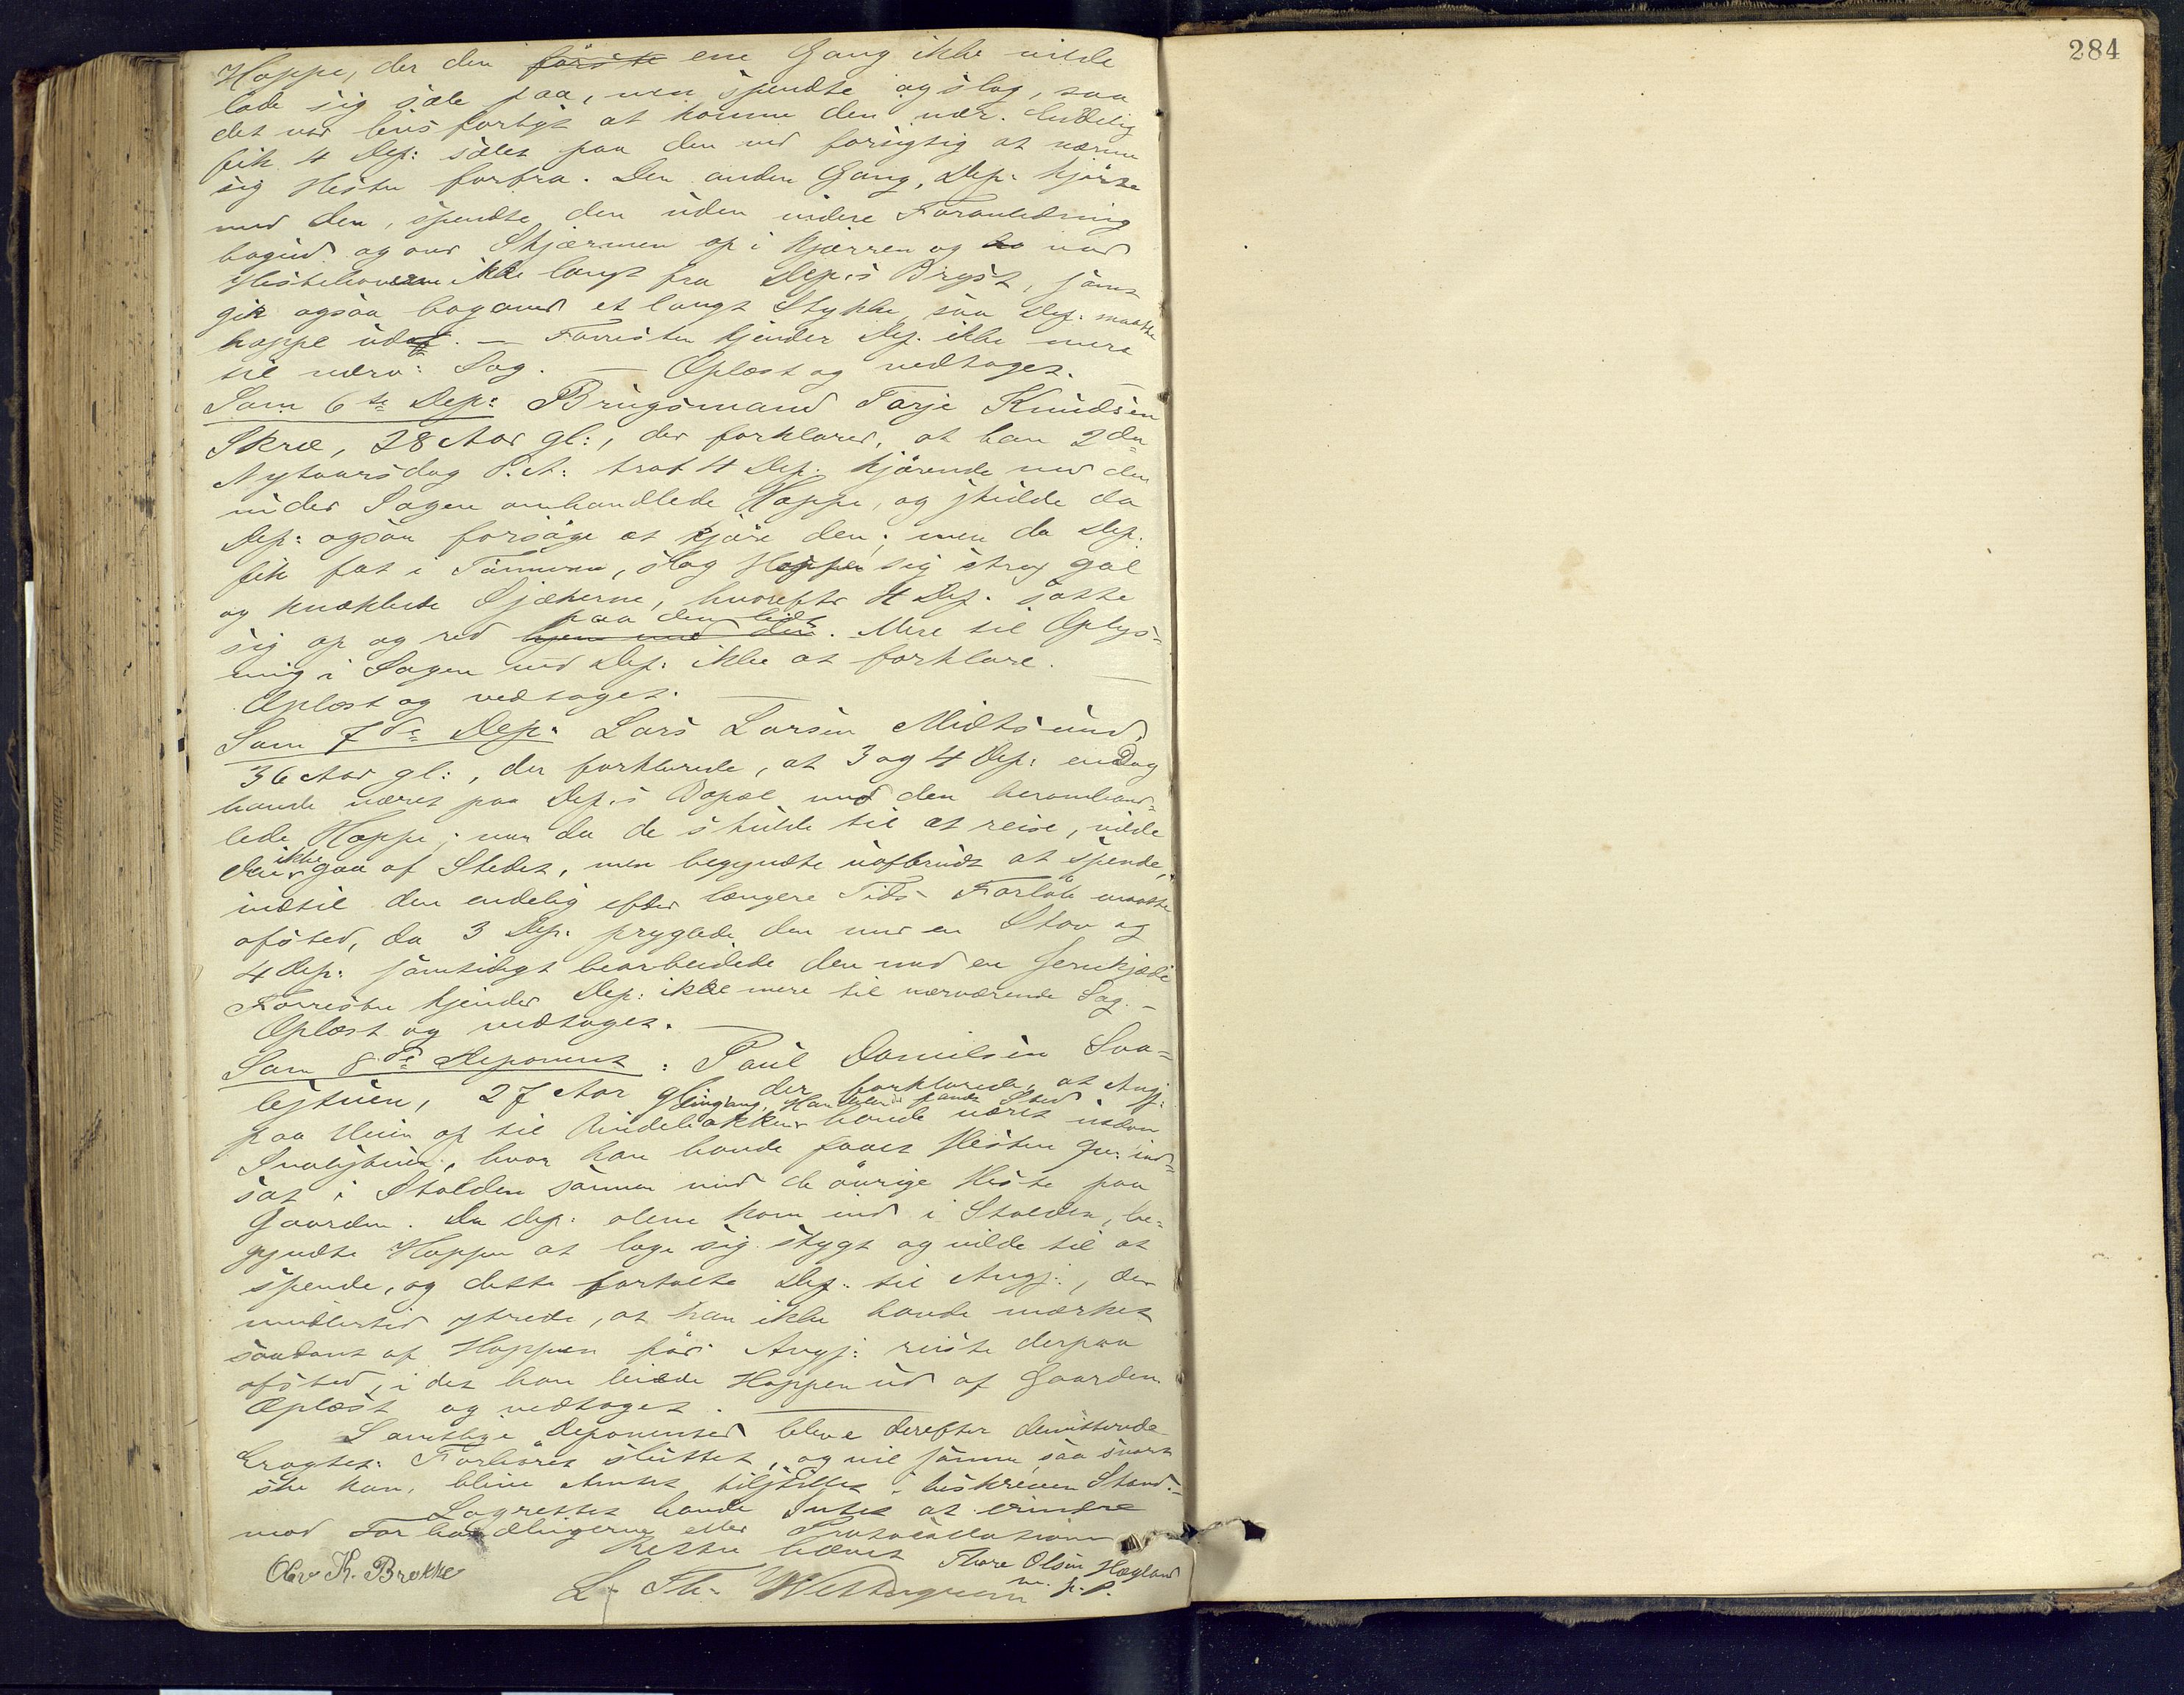 Hoppe, der den første ene Gang ikke vilde
lade sig sæle paa, men spendte og slog, saa
det var livsfarligt at komme den nær. Endelig
fik 4 Dep: sælet paa den ved forsigtig at nærme
sig Hesten forfra. Den anden Gang, Dep: kjørte
med den, spendte den uden videre Foranledning
bagud og over Skjærmen op i Kjærren og var
Hestehoverne ikke langt fra Dep:s Bryst, samt
gik ogsaa bagover et langt Stykke, saa Dep: maatte
hoppe udaf. — Forresten kjender Dep. ikke mere
til nærv: Sag. — Oplæst og vedtaget. —
Som 6te Dep: Brugsmand Tarje Knudsen
Skræ, 28 Aar gl:, der forklarer, at han 2den
Nytaarsdag d. A: traf 4 Dep. kjørende med den
under Sagen omhandlede Hoppe, og skulde da
Dep: ogsaa forsøge at kjøre den; men da Dep.
fik fat i Tømmene, slog Hoppen sig strax gal
og knækkede Skjækerne, hvorefter 4 Dep. satte
paa den lidt
sig op og red hjem med den. Mere til Oplys=
ning i Sagen ved Dep: ikke at forklare. —
Oplæst og vedtaget. —
Som 7de Dep: Lars Larsen Midtsund,
36 Aar gl:, der forklarede, at 3 og 4 Dep: en Dag
havde været paa Dep:s Bopæl med den heromhand=
lede Hoppe; men da de skulde til at reise, vilde
ikke
den gaa af Stedet, men begyndte uafbrudt at spende,
indtil den endelig efter længere Tids Forløb maatte
afsted, da 3 Dep. pryglede den med en Stav og
4 Dep: samtidigt bearbeidede den med en Jernkjæde
Forresten kjender Dep: ikke mere til nærværende Sag. —
Oplæst og vedtaget. —
Som 8de Deponent: Paul Danielsen Sva=
lestuen, 27 Aar gl: der forklarede, at Angj:
engang, Handelen fandt Sted
paa Veien op til havde været indom
Svalestuen, hvor han havde faaet Hesten ind=
sat i Stalden sammen med de øvrige Heste paa
Gaarden. Da Dep: alene kom ind i Stalden, be=
gyndte Hoppen at lage sig stygt og vilde til at
spende, og dette fortalte Dep: til Angj:, der
imidlertid ytrede, at han ikke havde mærket
saadant af Hoppen før. Angj: reiste derpaa
afsted, i det han leiede Hoppen ud af Gaarden.
Oplæst og vedtaget. —
Samtlige Deponenter bleve derefter demitterede
Eragtet: Forhøret sluttet, og vil samme, saa snart
ske kan, blive Amtet tilstillet i beskreven Stand. —
Lagrettet havde Intet at erindre
mod Forhandlingerne eller Protocollationen
Retten hævet
Olav K. Brokke
Thore Olsen Hægland
m. p. P.
L. Th. Westergreen
284